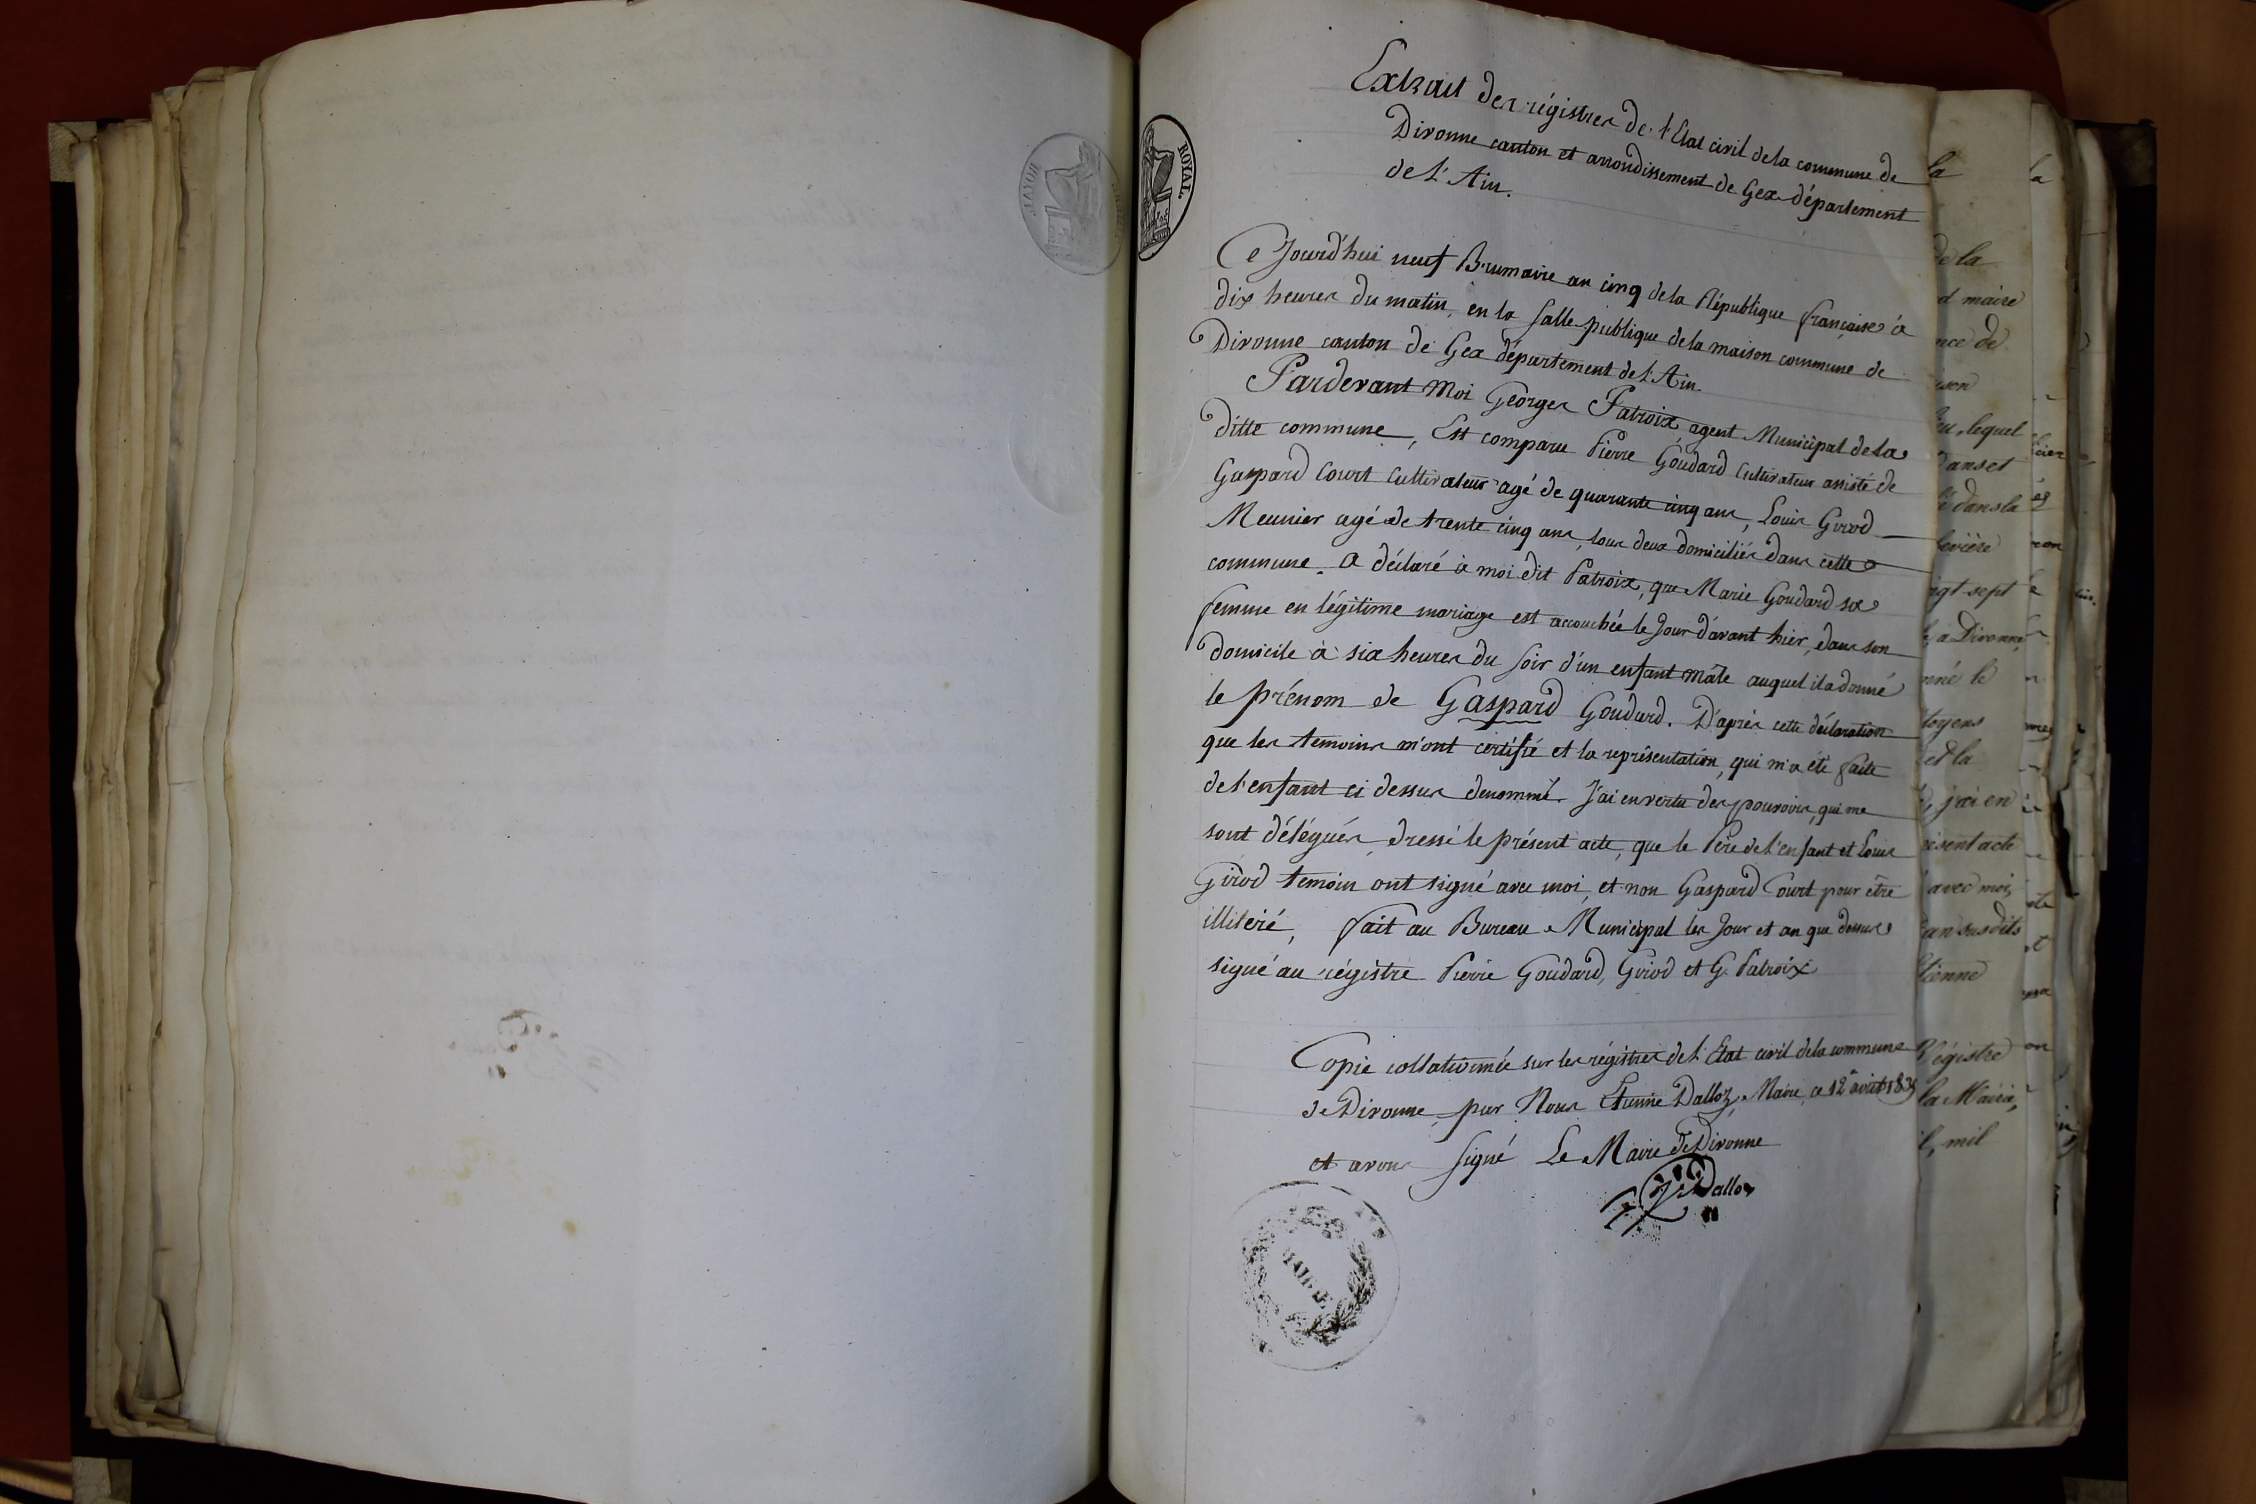 Extrait des régistres de l'Etat civil de la commune de
Divonne canton et arrondissement de Gex département
de l'Ain.
Ce Jourd'hui neuf Brumaire an cinq de la République française à
dix heures du matin, en la salle publique de la maison commune de
Divonne canton de Gex département de l'Ain
Pardevant Moi Georges Patroix, agent Municipal de la
ditte commune, Est comparu Pierre Goudard Cultivateur assisté de
Gaspard Court Cultivateur agé de quarante cinq ans, Louis Girod
Meunier agé de trente cinq ans, tous deux domiciliés dans cette
commune. a déclaré à moi dit Patroix, que Marie Goudard sa
femme en légitime mariage est accouchée le Jour d'avant hier, dans son
domicile à six heures du soir d'un enfant mâle auquel il a donné
le prénom de Gaspard Goudard. D'après cette déclaration
que les temoins m'ont certifié et la représentation, qui m'a été faite
de l'enfant ci dessus denommé. J'ai en vertu des pouvoirs, qui me
sont délégués, dressé le présent acte, que le Père de l'enfant et Louis
Girod temoin ont signé avec moi, et non Gaspard Court pour être
illiteré, fait au Bureau Municipal les Jour et an que dessus
signé au régistre Pierre Goudard, Girod et G. Patroix
Copie collationnée sur les régistres de l'Etat civil de la commune
de Divonne par Nous Etienne Dalloz, Maire, ce 12 avril
et avons signé Le Maire de Divonne
Dalloz
ROYAL.
MAIRIE
la
de la
maire
son
lequel
dans la
vingt-sept
a Divonne,
le
et la
j'ai en
avec moi,
an susdits
Régistre
la Mairie,
mil